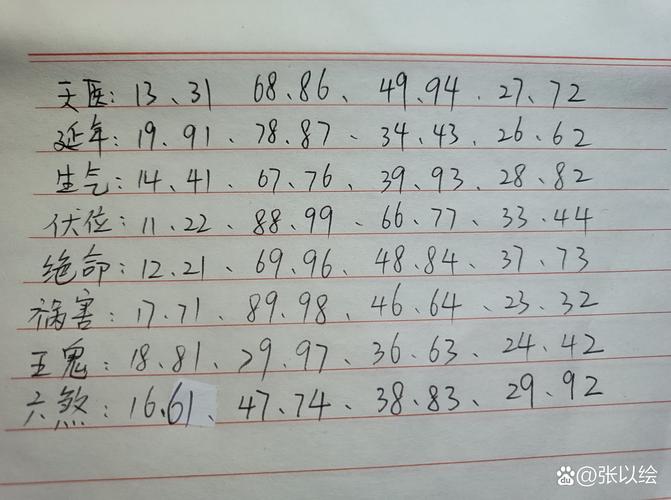 天医：13、31 68.86、49.94.27.72
延年：19.91、78.87、34.43、26.62
生气：14.41、67.76、39.93、28.82
伏位：11.22、88.99、66.77、33.44
绝命：12.21、69.96、48.84、37.73
祸害：17.71、89.98、46.64、23.32
五鬼：18.81、79.97、36.63、24.42
六煞：16.61、47.74、38.83、29.92
Baidu@张以绘